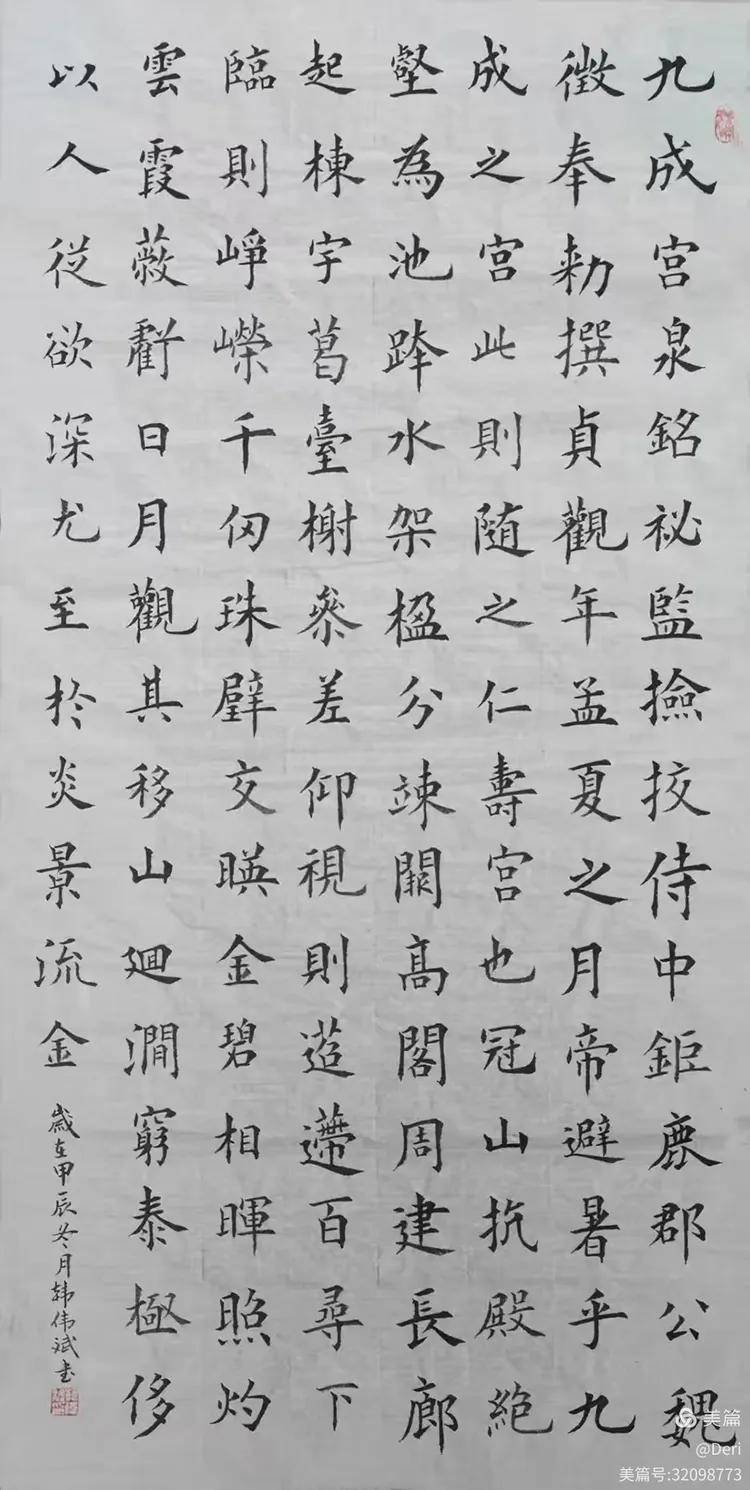 九成宮泉銘祕監撿挍侍中鉅鹿郡公魏
徵奉勑撰貞觀年孟夏之月帝避暑乎九
成之宮此則随之仁壽宮也冠山抗殿絶
壑為池跨水架楹分竦闕高閣周建長廊
起棟宇葛臺榭叅差仰視則迢遰百尋下
臨則崢嶸千仞珠璧交暎金碧相暉照灼
雲霞蔽虧日月觀其移山廻澗窮泰極侈
以人從欲深尤至於炎景流金
歲在甲辰冬月韩伟斌书
美篇
@Deri
美篇号:32098773